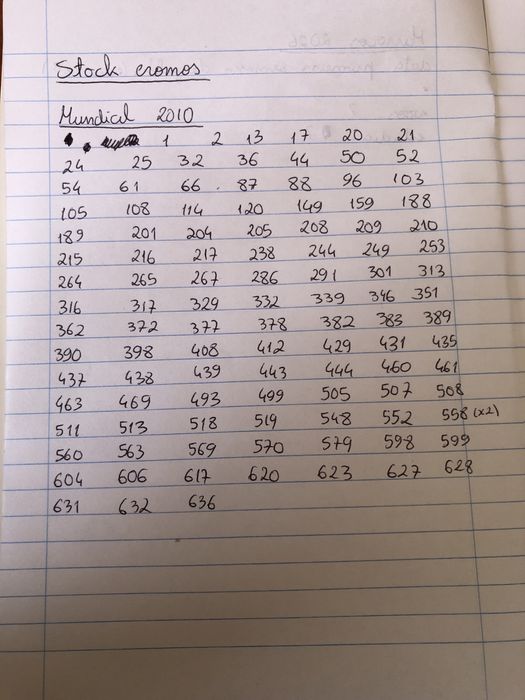 Stock cromos
Mundial 2010
1 2 13 17 20 21
24 25 32 36 44 50 52
54 61 66 87 88 96 103
105 108 114 120 149 159 188
189 201 204 205 208 209 210
215 216 217 238 244 249 253
264 265 267 286 291 301 313
316 317 329 332 339 346 351
362 372 377 378 382 383 389
390 398 408 412 429 431 435
437 438 439 443 444 460 461
463 469 493 499 505 507 508
511 513 518 519 548 552 558 (x2)
560 563 569 570 579 598 599
604 606 617 620 623 627 628
631 632 636